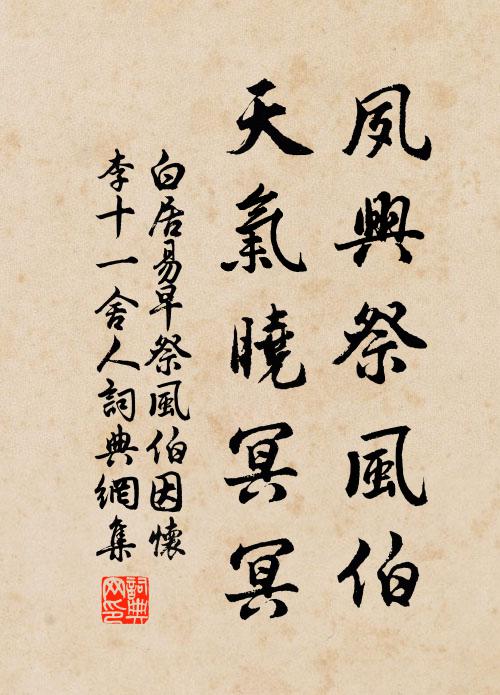 夙興祭風伯
天氣曉冥冥
白居易早祭風伯因懷
李十一舍人詞典網集
詞典
网印